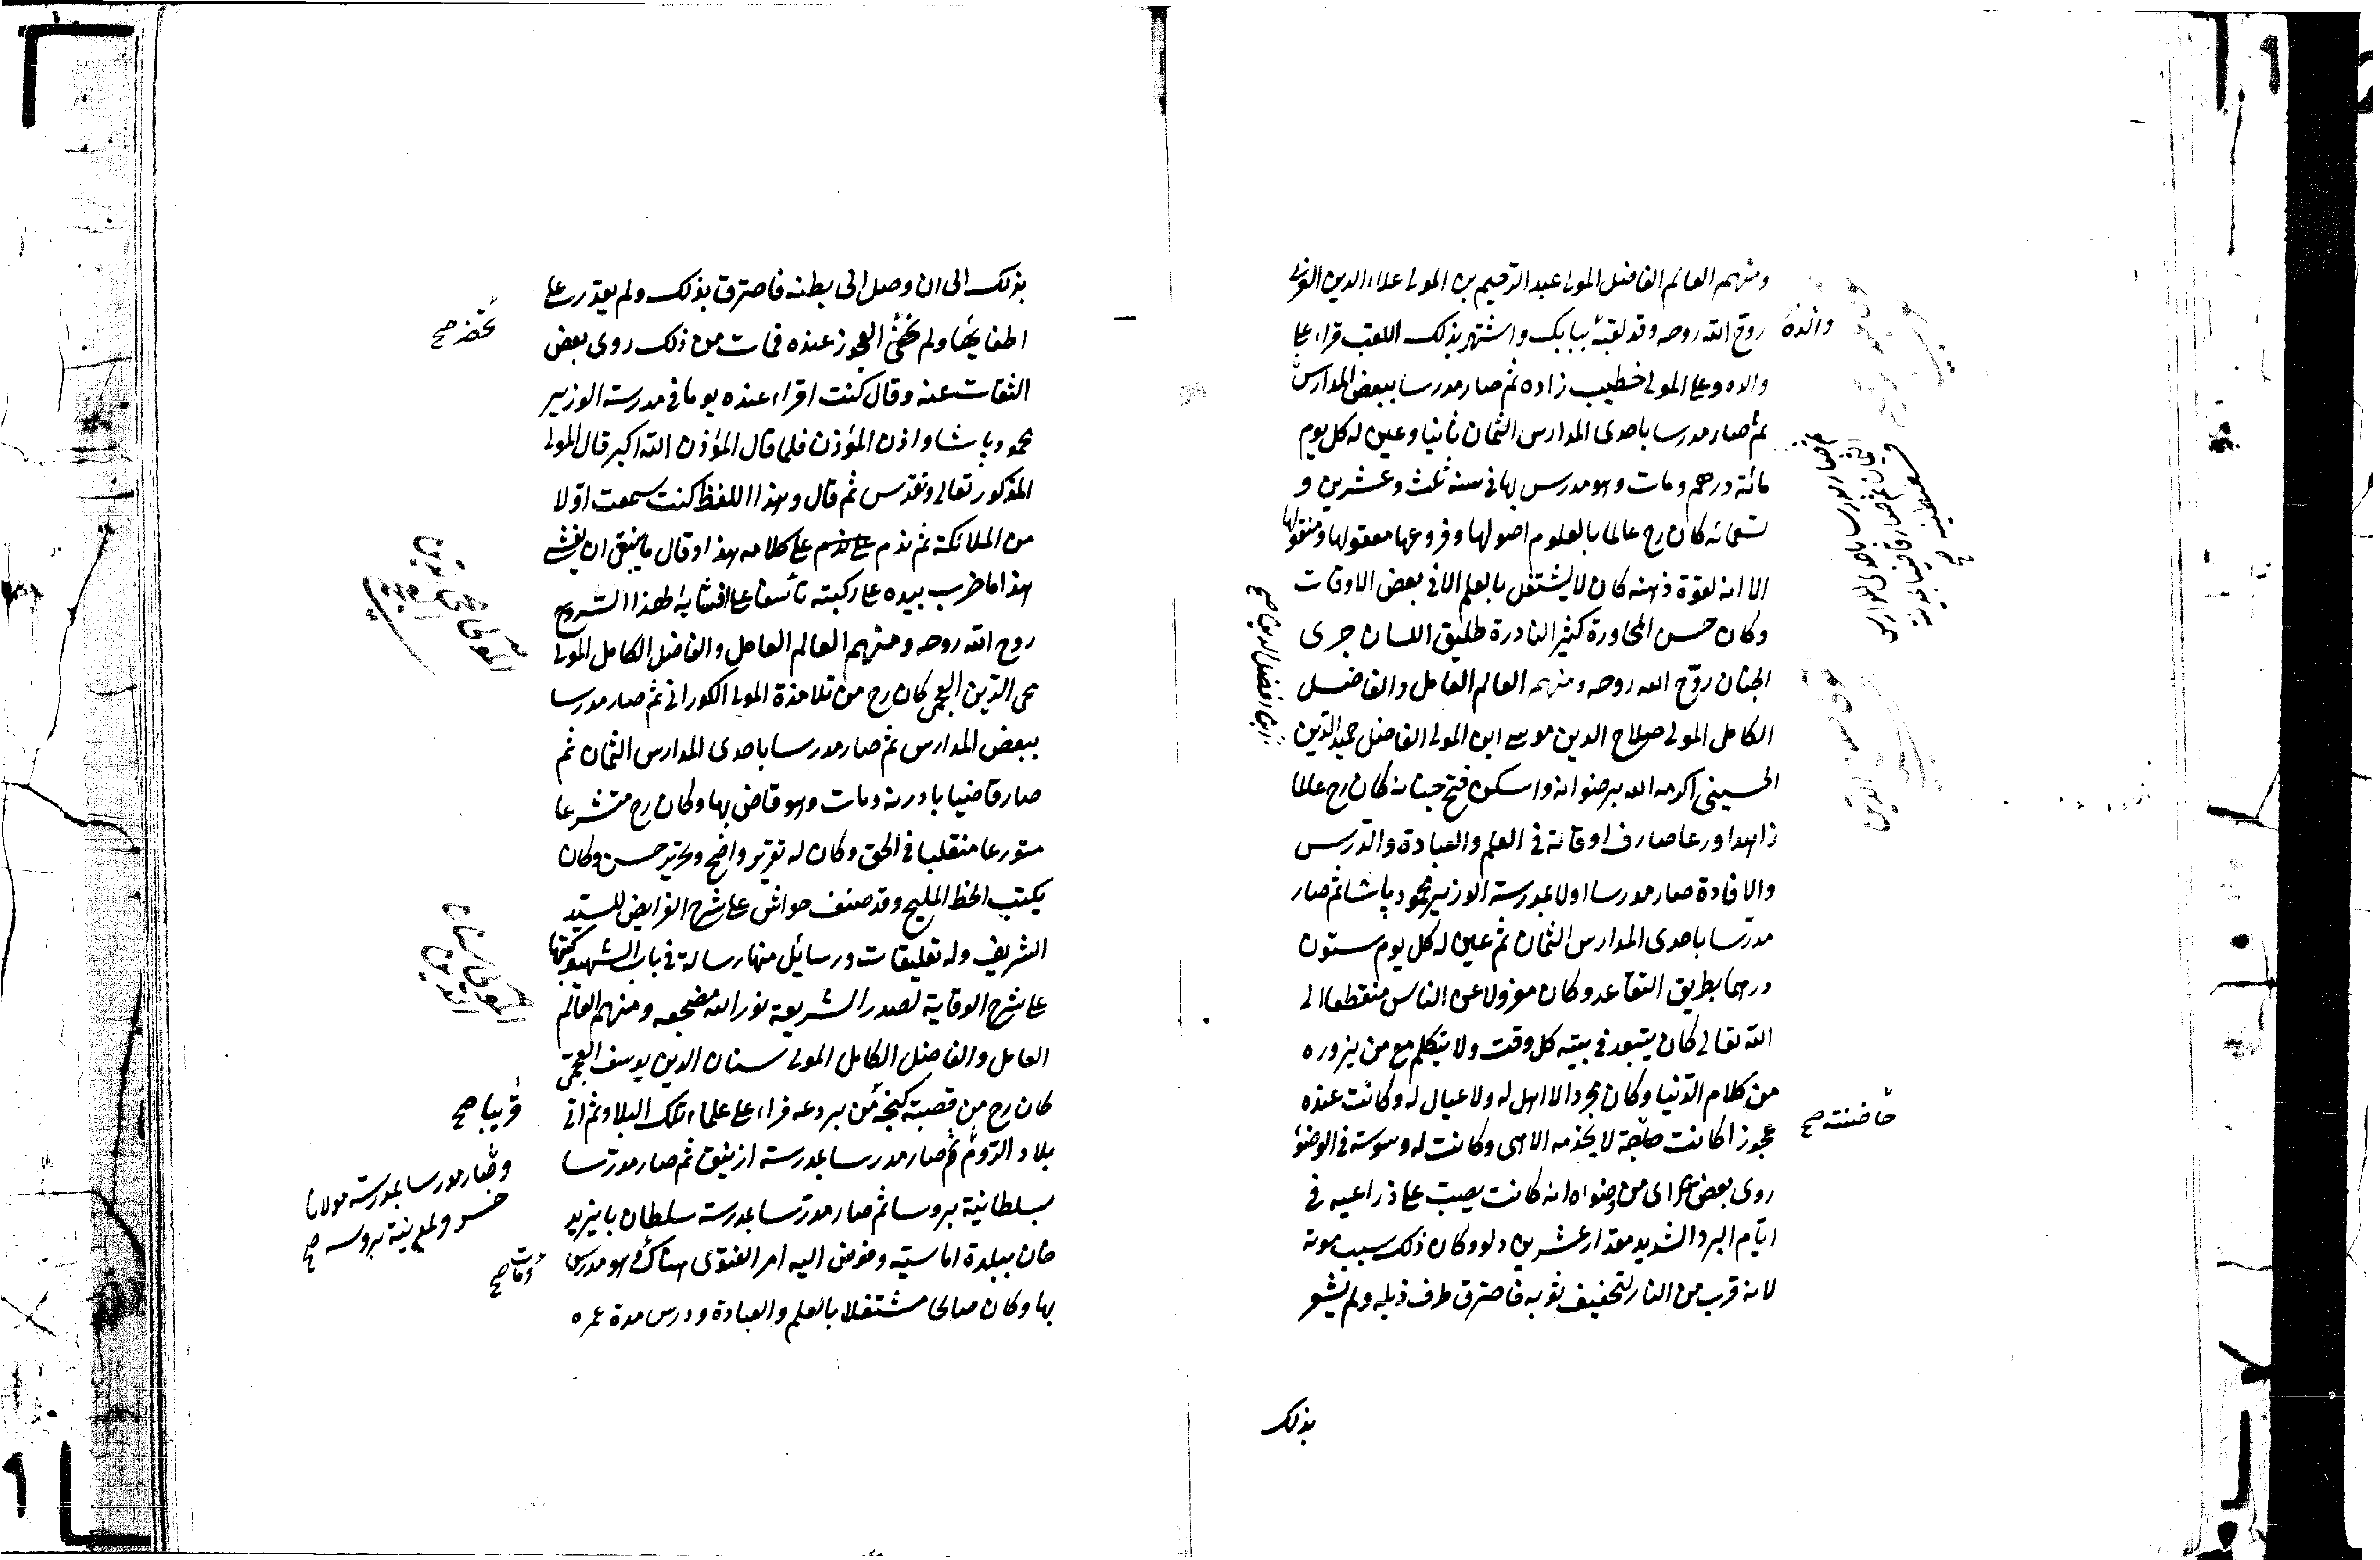 ومنهم العالم الفاضل المولى عبد الرحيم بن المولى علاء الدين العربى
والده
روح الله روحه وقد لقبه ببابك واشتهر بذلك اللقب قراء على
والده وعلى المولى خطيب زاده ثم صار مدرسا ببعض المدارس
ثم صار مدرسا باحدى المدارس الثمان ثانيا وعين له كل يوم
مائة درهم ومات وهو مدرس بها فى سنة ثلث وعشرين و
تسعمائه كان رح عالما بالعلوم اصولها وفروعها معقولها ومنقولها
الا انه لقوة ذهنه كان لا يشتغل بالعلم الا فى بعض الاوقات
وكان حسن المحاورة كثير النادرة طليق اللسان جرى
الجنان روح الله روحه ومنهم العالم العامل والفاضل
الكامل المولى صلاح الدين موسى ابن المولى الفاضل حميد الدين
الحسينى اكرمه الله برضوانه واسكن فتح جنانه كان رح عالما
زاهدا ورعا صارف اوقاته فى العلم والعبادة والدرس
والافادة صار مدرسا اولا بمدرسة الوزير محمود پاشا ثم صار
مدرسا باحدى المدارس الثمان ثم عين له كل يوم ستون
درهما بطريق التقاعد وكان معزولا عن الناس منقطعا الى
الله تعالى كان يتعبد فى بيته كل وقت ولا يتكلم مع من يزوره
من كلام الدنيا وكان مجردا لا اهل له ولا عيال له وكانت عنده
حاضنته صح
عجوز كانت صالحة لا يخدمه الا هى وكانت له وسوسة فى الوضوء
روى بعض من راى من وضوءه انه كانت يصب على ذراعيه فى
ايام البرد الشديد مقدار عشرين دلو وكان ذلك سبب موته
لانه قرب من النار لتجفيف ثوبه فاحترق طرف ذيله ولم يشعر
بذلك
بذلك الى ان وصل الى بطنه فاحترق بذلك ولم يقدر على
اطفايها ولم العجوز عنده فمات من ذلك روى بعض
تحضر صح
الثقات عنه وقال كنت اقراء عنده يوما فى مدرسة الوزير
محمود پاشا واذن المؤذن فلما قال المؤذن الله اكبر قال المولى
المذكور تعالى وتقدس ثم قال وهذا اللفظ كنت سمعت اولا
من الملائكة ثم ندم على كلامه هذا وقال ما ينبغى ان يفشى
هذا ما ضرب بيده على ركبته تأسفا على افشائه لهذا السر
روح الله روحه ومنهم العالم العامل والفاضل الكامل المولى
محى الدين العجمى كان رح من تلامذة المولى الكورانى ثم صار مدرسا
ببعض المدارس ثم صار مدرسا باحدى المدارس الثمان ثم
صار قاضيا بادرنه ومات وهو قاض بها وكان رح متشرعا
متورعا متقلبا فى الحق وكان له تقرير واضح وتحرير حسن وكان
يكتب الخط المليح وقد صنف حواش على شرح الفرايض للسيد
الشريف وله تعليقات ورسائل منها رسالة فى باب الشهيد وكتبها
على شرح الوقاية لصدر الشريعة نور الله مضجعه ومنهم العالم
العامل والفاضل الكامل المولى سنان الدين يوسف العجمى
كان رح من قصبة كنجه من بردعه قراء على علماء تلك البلاد ثم اتى
قريبا صح
بلاد الروم ثم صار مدرسا بمدرسة ازنيق ثم صار مدرسا
وصار مدرسا بمدرسة مولانا
خسرو بمدينة بروسه صح
بسلطانية بروسا ثم صار مدرسا بمدرسة سلطان بايزيد
خان ببلدة اماسيه وفوض اليه امر الفتوى هناك وهو مدرس
ومات صح
بها وكان صالحا مشتغلا بالعلم والعبادة ودرس مدة عمره